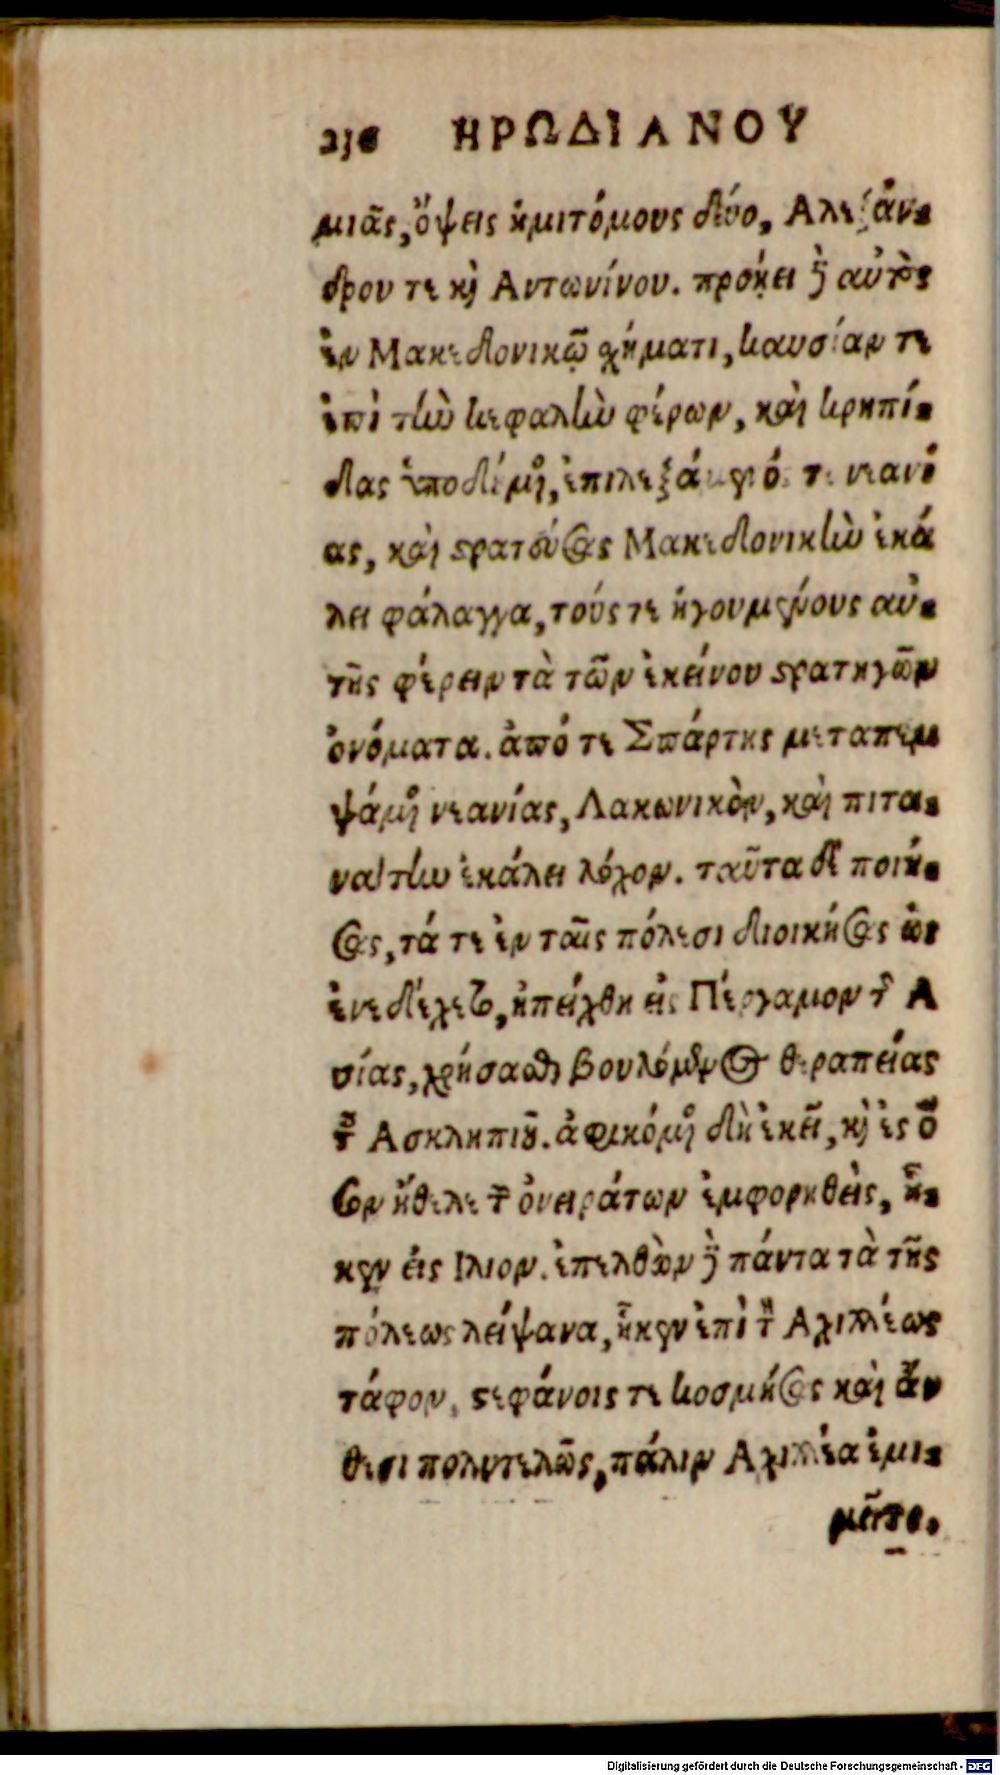 236 ΗΡΩΔΙΑΝΟΥ
μιᾶς, ὄψεις ἡμιτόμους δύο, Αλεξάν-
δρου τε κὶ Αντωνίνου. προῄει ἢ αὐτὸς
ἐν Μακεδονικῷ σχήματι, καυσίαν τε
ἐπὶ τὴν κεφαλὴν φέρων, καὶ κρηπί-
δας ὑποδέμῃ, ἐπιλεξά τε νεανί
ας, καὶ στρατεύσας Μακεδονικὴν ἐκά
λει φάλαγγα, τούς τε ἡγουμένους αὐ-
τῆς φέρειν τὰ τῶν ἐκείνου στρατηγῶν
ὀνόματα. ἀπό τε Σπάρτης μεταπεμ
ψάμῃ νεανίας, Λακωνικὸν, καὶ πιτα-
νάτην ἐκάλει λόχον. ταῦτα δὲ ποιή-
σας, τά τε ἐν ταῖς πόλεσι διοικήσας ὡς
ἐνεδέχετο, ἠπείχθη εἰς Πέργαμον τ Α
σίας, χρήσασθαι βουλόμενος θεραπείας
τ Ασκληπιοῦ. ἀφικόμῃ δὴ ἐκεῖ, κὶ ἐς ὅ
σον ἤθελε τ ὀνειράτων ἐμφορηθεὶς, ἧ-
κεν εἰς Ιλιον. ἐπελθὼν ἢ πάντα τὰ τῆς
πόλεως λείψανα, ἧκεν ἐπὶ τ Αχιλλέως
τάφον, στεφάνοις τε κοσμήσας καὶ ἄν
θεσι πολυτελῶς, πάλιν Αχιλλέα ἐμι-
μεῖτο.
Digitalisierung gefördert durch die Deutsche Forschungsgemeinschaft - DFG